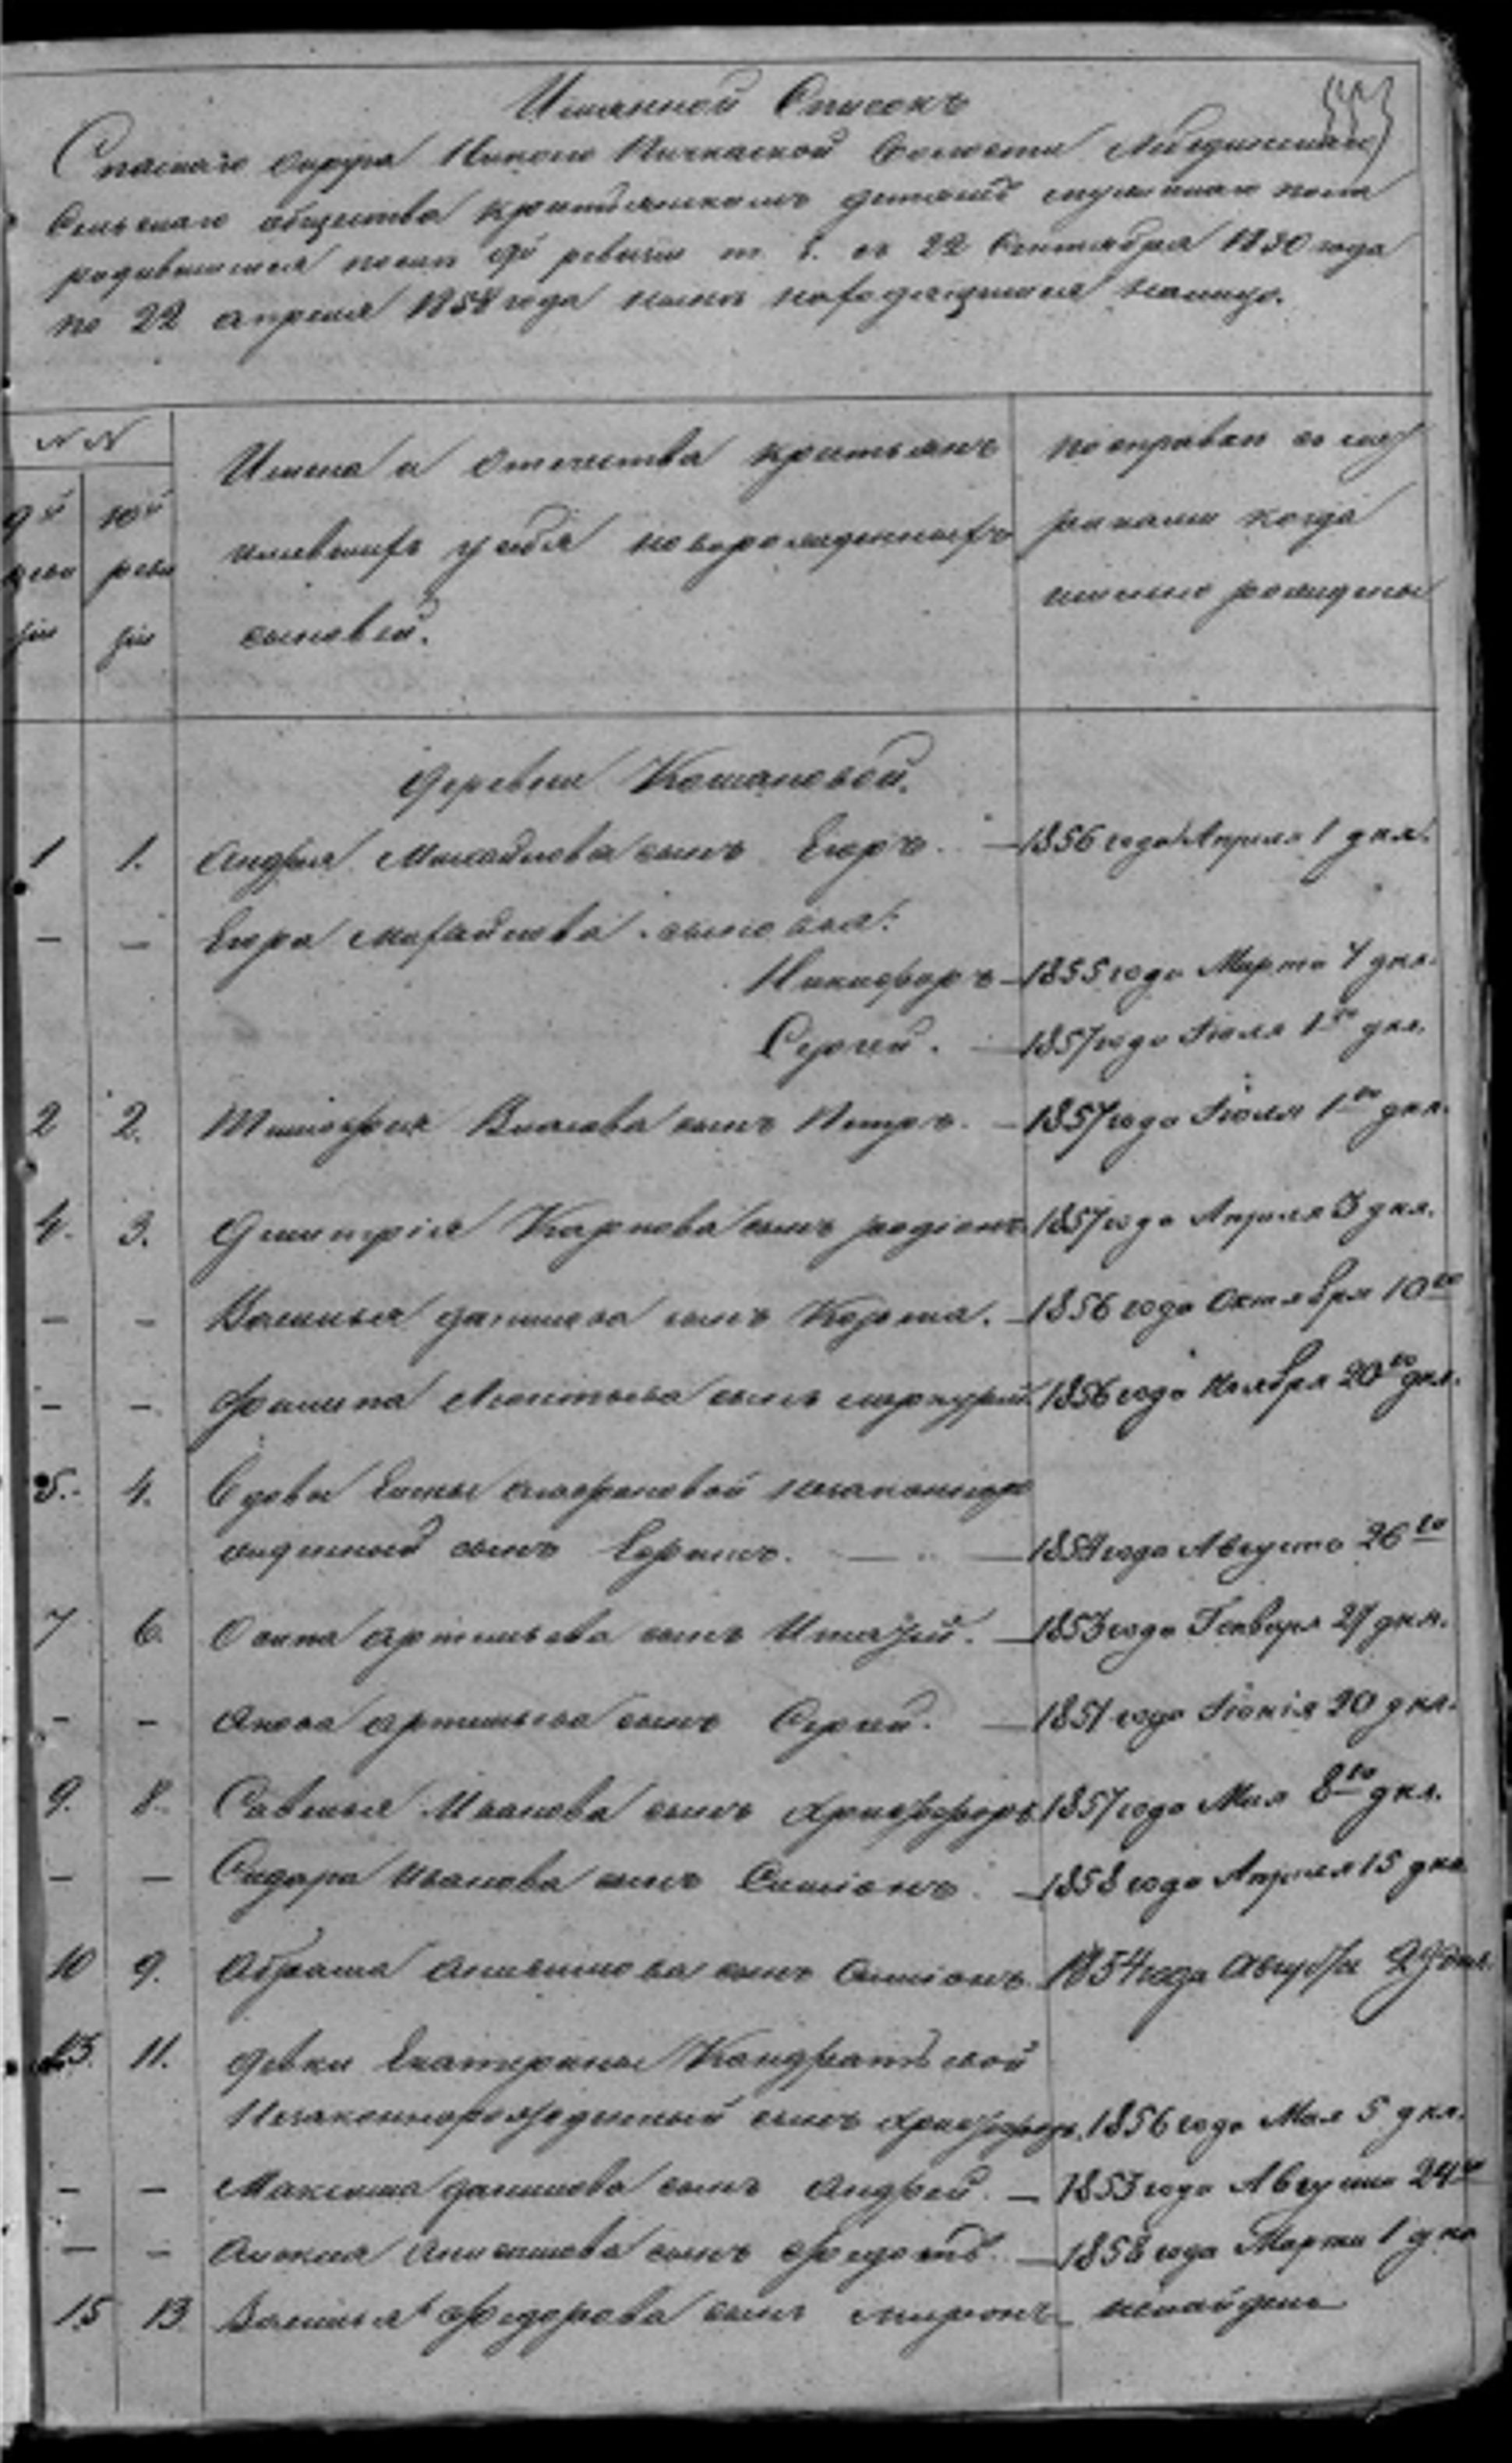 Имянной Списокъ
Спаскаго округа Николо Пичкаской волости
Сельскаго общества крестьянскимъ детямъ мужескаго пола
родившимся после 9й ревизіи т. е. съ 22 Сентября 1850 года
по 22 апреля 1858 года ныне находящимся налицо.
N N
9й 10й Имена и отечества крестьянъ по справкамъ
реви реви имевшихъ у себя новорожденныхъ когда
зіи зіи сыновей. именно рождены
Деревни Кошановой.
1 1. Андрея Михайлова сынъ Егоръ. — 1856 года Апреля 1 дня.
— — Егора Михайлова сыновья:
Никифоръ — 1855 года Марта 4 дня.
Сергей. — 1857 года Іюля 1го дня.
2 2. Тимофея Власова сынъ Петръ. — 1857 года Іюля 1го дня.
4. 3. Дмитрія Карпова сынъ родіонъ 1857 года Апреля 3 дня.
— — Василья данилова сынъ Козма. — 1856 года Октября 10го
— — Филипа Леонтьева сынъ меркурий 1856 года Ноября 20го дня.
5. 4. Вдовы Елены незаконноро
жденный сынъ Ефимъ. — 1854 года Августа 26го
7 6. Осипа артемьева сынъ Игнатій. — 1853 года Генваря 27 дня.
— — Якова артемьева сынъ Сергей. — 1857 года Іюнія 20 дня.
9. 8. Савелья Иванова сынъ христофоръ 1857 года Мая 8го дня.
— — Сидора Иванова сынъ Симіонъ. — 1858 года Апреля 15 дня
10 9. Абрама Анисимова сынъ Симіонъ. 1854 года Августа 29 дня.
13. 11. Девки Екатерины Кондратьевой
Незаконнорожденный сынъ христофоръ. 1856 года Мая 5 дня.
— — Максима данилова сынъ Андрей. — 1853 года Августа 24го
— — Алексея Анисимова сынъ федотъ. — 1858 года Марта 1 дня
15 13 Василья федорова сынъ миронъ — ненайденъ